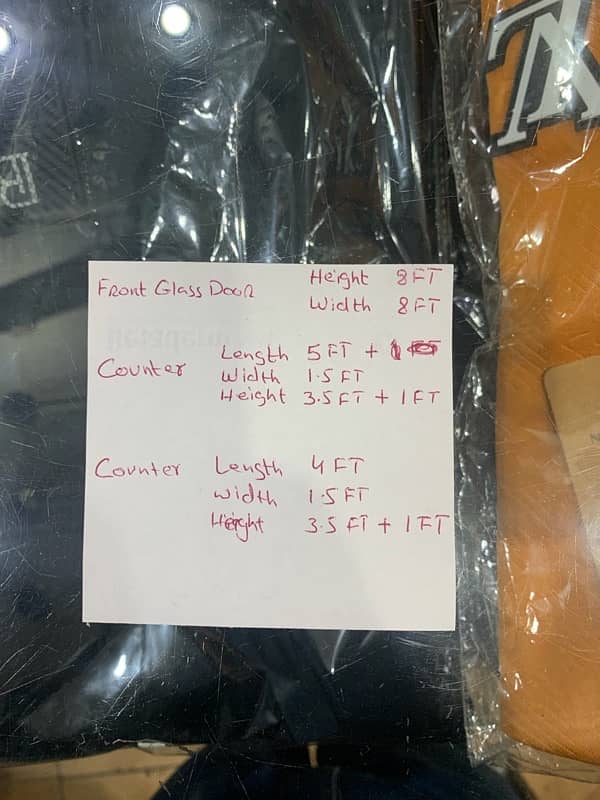 Front Glass Door
Height 8FT
Width 8FT
Counter
Length 5 FT +
Width 1.5 FT
Height 3.5 FT + 1 FT
Counter Length 4 FT
Width 1.5 FT
Height 3.5 FT + 1 FT